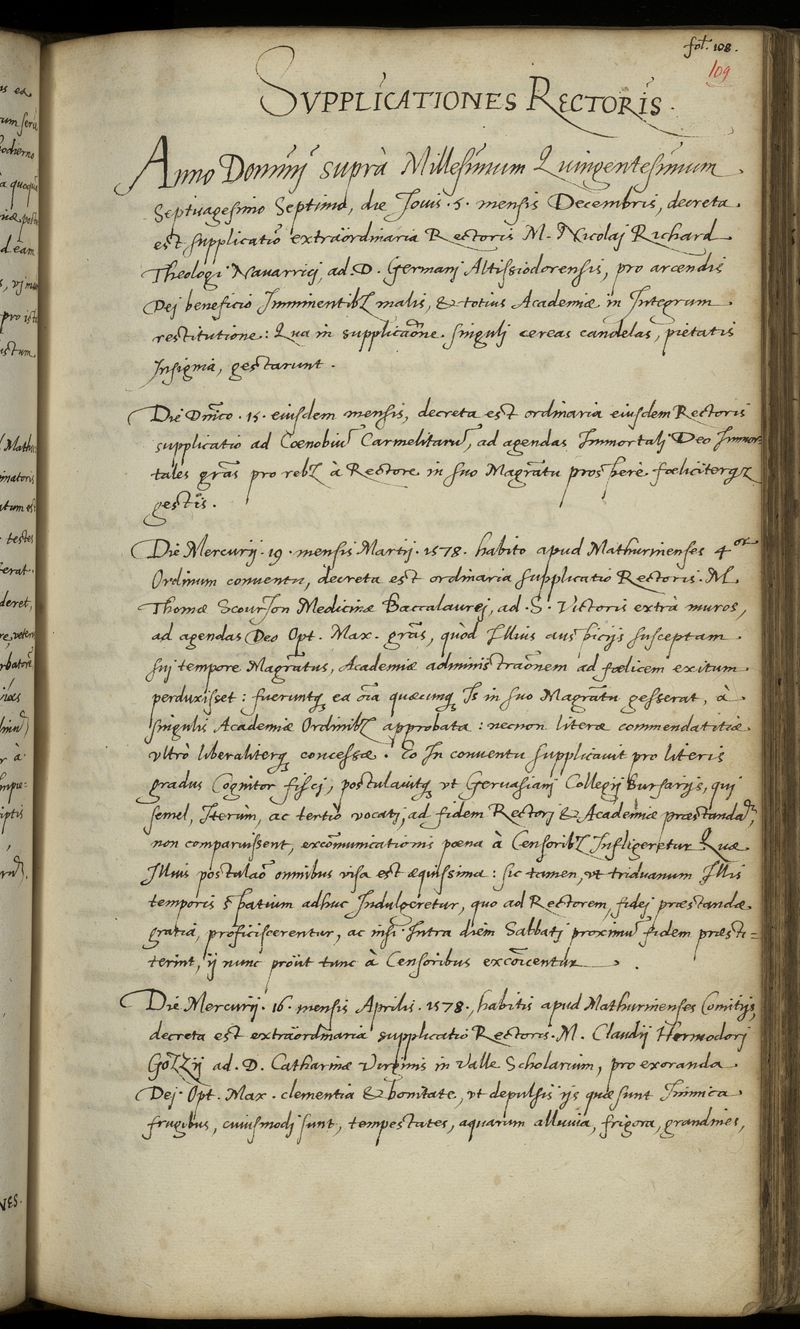 fol. 108.
109
SVPPLICATIONES RECTORIS.
Anno Dominij suprà Millesimum Quingentesimum
Septuagesimo Septimo, die Jouis .5. mensis Decembris, decreta
est supplicatio extraordinaria Rectoris M. Nicolaj Richard
Theologi Nauarrici, ad .D. Germanj Altissiodorensis, pro arcendis
Dej beneficio Imminentibꝫ malis, & totius Academiæ in Integrum
restitutione: Qua in supplicaõne singulj cereas candelas, pietatis
Insignia, gestarunt.
Die Dnico .15. eiusdem mensis, decreta est ordinaria eiusdem Rectoris
supplicatio ad Cœnobiũ Carmelitarũ, ad agendas Immortalj Deo Immor-
tales grãs pro rebꝫ à Rectore in suo Magratu prosperè fœliciterqꝫ
gestis.
Die Mercurij .19. mensis Martij .1578. habito apud Mathurinenses 4or
Ordinum conuentu, decreta est ordinaria supplicatio Rectoris .M.
Thomæ Scourjon Medicinæ Baccalaurej, ad .S. Victoris extrà muros,
ad agendas Deo Opt. Max. grãs, quòd Illius auspicijs susceptam
suj tempore Magratus, Academiæ administraõnem ad fœlicem exitum
perduxisset: fueruntqꝫ ea oĩa quæcunqꝫ Is in suo Magratu gesserat, à
singulis Academiæ Ordinibꝫ approbata: necnon literæ commendatitiæ
vltrò liberaliterqꝫ concessæ. Eo In conuentu supplicauit pro literis
gradus Cognitor fiscj, postulauitqꝫ vt Geruasianj Collegij Bursarijs, quj
semel, Iterùm, ac tertiò vocatj, ad fidem Rectorj & Academiæ præstandã,
non comparuissent, excõmunicationis pœna à Censoribꝫ Infligeretur Quæ
Illius postulaõ omnibus visa est æquissima: sic tamen, vt triduanum Illis
temporis spatium adhuc Indulgeretur, quo ad Rectorem, fidej præstandæ
gratia, proficiscerentur, ac nisi Intra diem Sabbatj proximũ fidem præsti=
terint, ij nunc proùt tunc à Censoribus excõicentur.
Die Mercurij .16. mensis Aprilis .1578., habitis apud Mathurinenses Comitijs,
decreta est extraordinaria supplicatio Rectoris .M. Claudij Hermodorj
Gozzij ad .D. Catharinæ Virginis in Valle Scholarium, pro exoranda
Dej Opt. Max. clementia & bonitate, vt depulsis ijs quæ sunt Inimica
frugibus, cuiusmodj sunt, tempestates, aquarum alluuia, frigora, grandines,